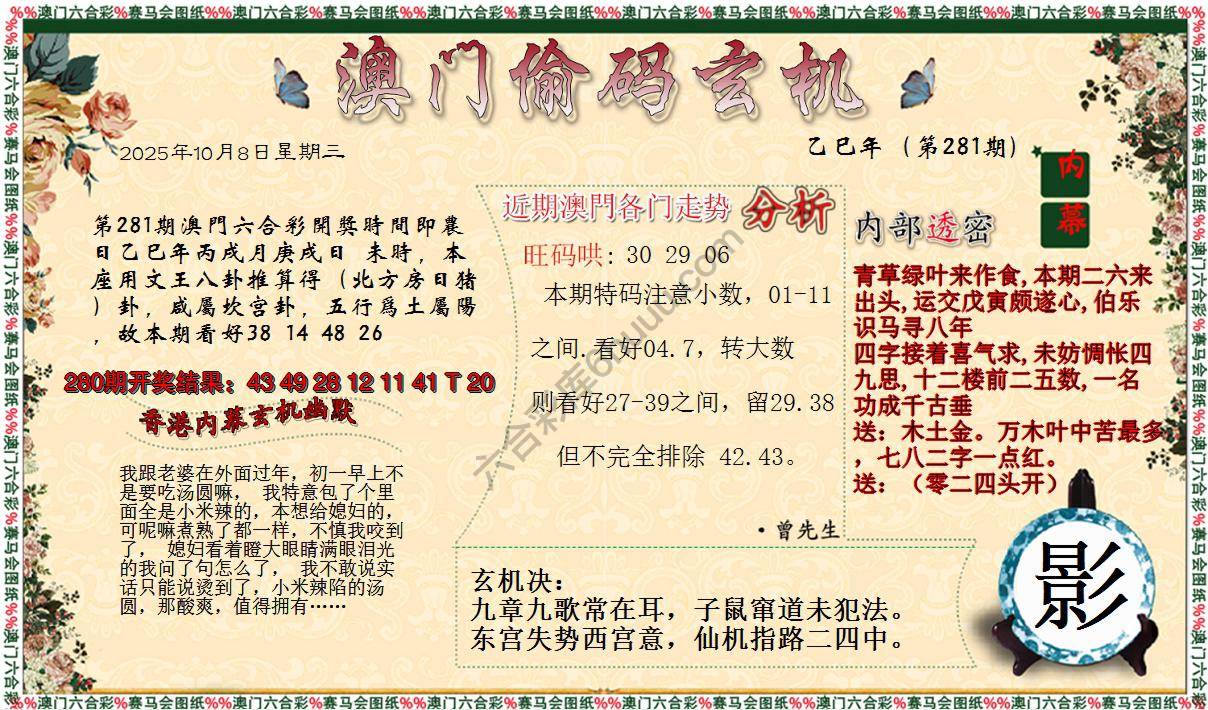 %%澳门六合彩%赛马会图纸%%澳门六合彩%赛马会图纸%%澳门六合彩%赛马会图纸%%澳门六合彩%赛马会图纸%%澳门六合彩%赛马会图纸%%澳门六合彩%赛马会图纸%%澳门六合彩%赛马会图纸%%
澳门偷码玄机
2025年10月8日星期三
乙巳年 (第281期)
内幕
第281期澳門六合彩開獎時間即農
日乙巳年丙戌月庚戌日 未時，本
座用文王八卦推算得（北方房日猪
）卦，威屬坎宫卦，五行爲土屬陽
，故本期看好38 14 48 26
280期开奖结果：43 49 28 12 11 41 T 20
香港内幕玄机幽默
我跟老婆在外面过年，初一早上不
是要吃汤圆嘛， 我特意包了个里
面全是小米辣的，本想给媳妇的，
可呢嘛煮熟了都一样，不慎我咬到
了， 媳妇看着瞪大眼睛满眼泪光
的我问了句怎么了， 我不敢说实
话只能说烫到了，小米辣陷的汤
圆，那酸爽，值得拥有……
近期澳門各门走势 分析
旺码哄: 30 29 06
本期特码注意小数，01-11
之间.看好04.7，转大数
则看好27-39之间，留29.38
但不完全排除 42.43。
·曾先生
内部透密
青草绿叶来作食,本期二六来
出头,运交戊寅颇遂心,伯乐
识马寻八年
四字接着喜气求,未妨惆怅四
九思,十二楼前二五数,一名
功成千古垂
送：木土金。万木叶中苦最多
，七八二字一点红。
送：（零二四头开）
玄机决：
九章九歌常在耳，子鼠窜道未犯法。
东宫失势西宫意，仙机指路二四中。
影
%%澳门六合彩%赛马会图纸%%澳门六合彩%赛马会图纸%%澳门六合彩%赛马会图纸%%澳门六合彩%赛马会图纸%%澳门六合彩%赛马会图纸%%澳门六合彩%赛马会图纸%%澳门六合彩%赛马会图纸%%